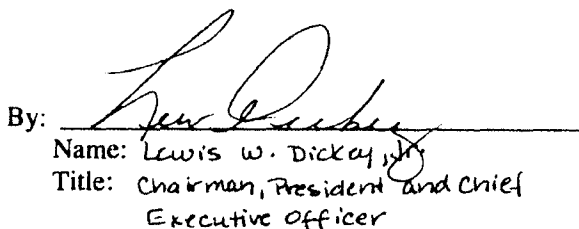 By: Lew Dickey
Name: Lewis W. Dickey, Jr.
Title: Chairman, President and Chief
Executive Officer